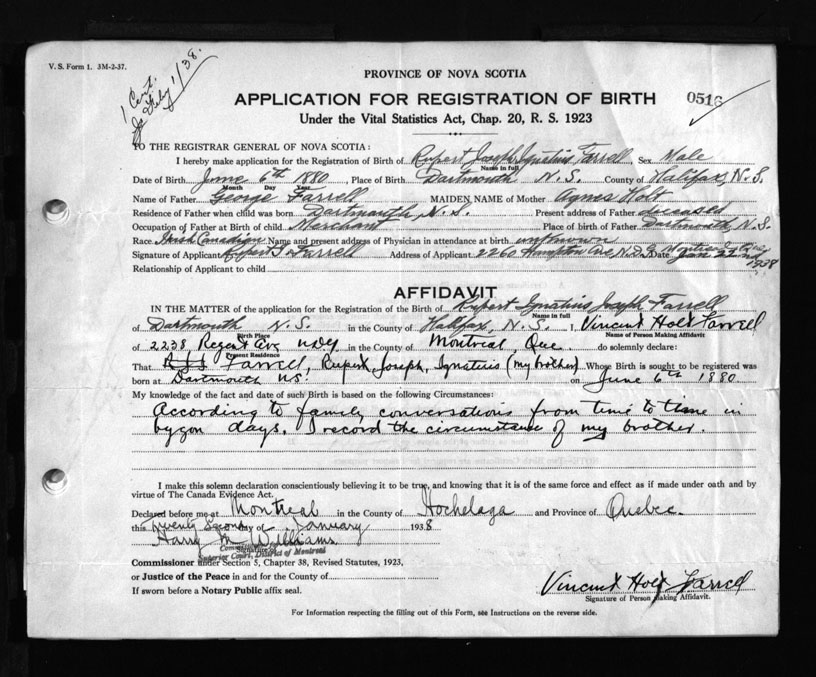 V. S. Form 1. 3M-2-37.
1 Cert.
Feby 1/38.
PROVINCE OF NOVA SCOTIA
APPLICATION FOR REGISTRATION OF BIRTH
0516
Under the Vital Statistics Act, Chap. 20, R. S. 1923
TO THE REGISTRAR GENERAL OF NOVA SCOTIA:
I hereby make application for the Registration of Birth of Rupert Joseph Ignatius Farrell, Sex Male
Name in full
Date of Birth June 6th 1880 Place of Birth Dartmouth N.S. County of Halifax, N.S.
Month Day Year
Name of Father George Farrell MAIDEN NAME of Mother Agnes Holt
Residence of Father when child was born Dartmouth, N.S. Present address of Father deceased
Occupation of Father at Birth of child Merchant Place of birth of Father Dartmouth, N.S.
Race Irish Canadian Name and present address of Physician in attendance at birth unknown
Signature of Applicant Rupert J Farrell Address of Applicant 2260 Hampton Ave, N.D.G Montreal Que Date Jan 22nd 1938
Relationship of Applicant to child
AFFIDAVIT
IN THE MATTER of the application for the Registration of the Birth of Rupert Ignatius Joseph Farrell
Name in full
of Dartmouth N.S. in the County of Halifax, N.S. I, Vincent Holt Farrell
Birth Place Name of Person Making Affidavit
of 2238 Regent Ave NDG in the County of Montreal Que. do solemnly declare:
Present Residence
That Farrell, Rupert, Joseph, Ignatius (my brother) Whose Birth is sought to be registered was
born at Dartmouth NS. on June 6th 1880
My knowledge of the fact and date of such Birth is based on the following Circumstances:
According to family conversations from time to time in
bygon days. I record the circumstance of my brother.
I make this solemn declaration conscientiously believing it to be true, and knowing that it is of the same force and effect as if made under oath and by
virtue of The Canada Evidence Act.
Declared before me at Montreal in the County of Hochelaga and Province of Quebec.
this Twenty Second day of January 1938
Harry M Williams
Signature of
Superior Court, District of Montreal
Commissioner under Section 5, Chapter 38, Revised Statutes, 1923,
or Justice of the Peace in and for the County of
If sworn before a Notary Public affix seal.
Vincent Holt Farrell
Signature of Person Making Affidavit.
For Information respecting the filling out of this Form, see Instructions on the reverse side.